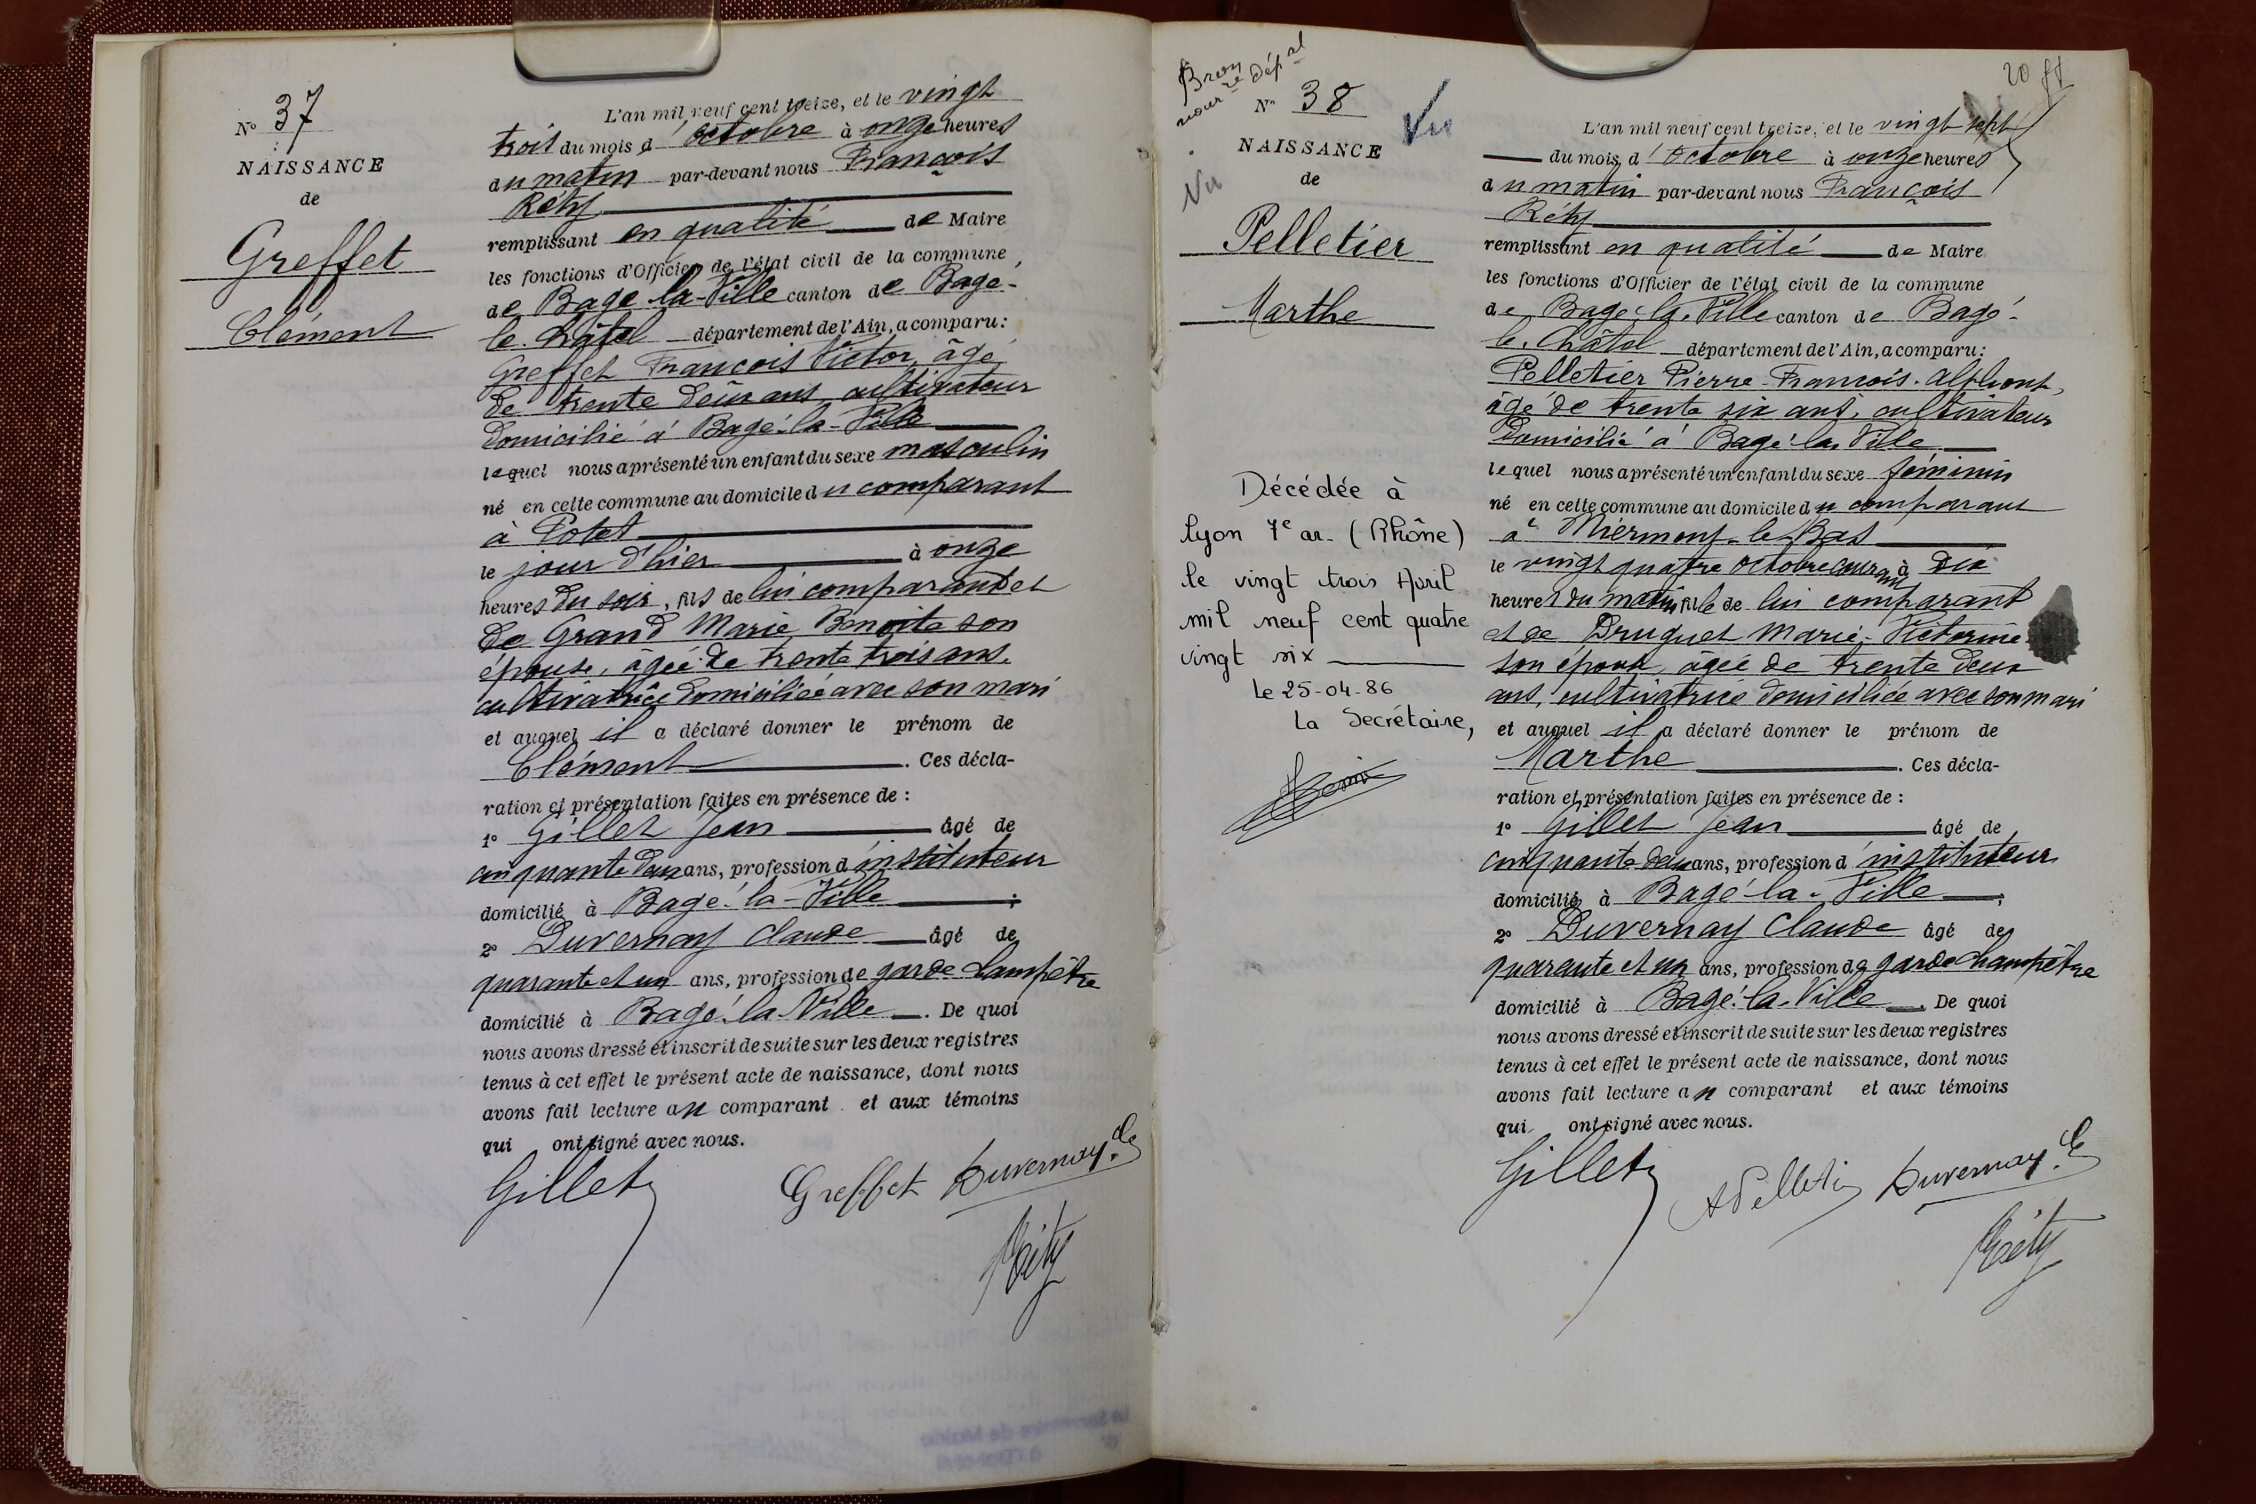 N° 37
NAISSANCE
de
Greffet
Clément
L'an mil neuf cent treize, et le vingt
trois du mois d'octobre à onze heures
du matin par-devant nous François
Réty
remplissant en qualité de Maire
les fonctions d'Officier de l'état civil de la commune
de Bagé-la-Ville canton de Bagé-
le-Châtel département de l'Ain, a comparu:
Greffet François Victor, âgé
de trente deux ans, cultivateur
domicilié à Bagé-la-Ville
lequel nous a présenté un enfant du sexe masculin
né en cette commune au domicile du comparant
à Potet
le jour d'hier à onze
heures du soir, fils de lui comparant et
de Grand Marie Benoite son
épouse, âgée de trente trois ans,
cultivatrice domiciliée avec son mari
et auquel il a déclaré donner le prénom de
Clément. Ces décla-
ration et présentation faites en présence de :
1° Gillet Jean âgé de
cinquante deux ans, profession d'instituteur
domicilié à Bagé-la-Ville ;
2° Duvernay Claude âgé de
quarante et un ans, profession de garde Champêtre
domicilié à Bagé-la-Ville. De quoi
nous avons dressé et inscrit de suite sur les deux registres
tenus à cet effet le présent acte de naissance, dont nous
avons fait lecture au comparant et aux témoins
qui ont signé avec nous.
Gillet Greffet Duvernay Cde
Réty
Bron
dépal
N° 38
Vu
NAISSANCE
de
Vu
Pelletier
Marthe
Décédée à
Lyon 7e ar. (Rhône)
le vingt trois Avril
mil neuf cent quatre
vingt six
Le 25-04-86
La Secrétaire,
20
L'an mil neuf cent treize, et le vingt sept
du mois d'octobre à onze heures
du matin par-devant nous François
Réty
remplissant en qualité de Maire
les fonctions d'Officier de l'état civil de la commune
de Bagé-la-Ville canton de Bagé-
le-Châtel département de l'Ain, a comparu:
Pelletier Pierre-François-Alphonse,
âgé de trente six ans, cultivateur
domicilié à Bagé-la-Ville
lequel nous a présenté un enfant du sexe féminin
né en cette commune au domicile du comparant
à Miermont-le-Bas
le vingt quatre octobre courant à dix
heures du matin, fille de lui comparant
et de Druguet Marie-Victorine
son épouse, âgée de trente deux
ans, cultivatrice domiciliée avec son mari
et auquel il a déclaré donner le prénom de
Marthe. Ces décla-
ration et présentation faites en présence de :
1° Gillet Jean âgé de
cinquante deux ans, profession d'instituteur
domicilié à Bagé-la-Ville ;
2° Duvernay Claude âgé de
quarante et un ans, profession de garde champêtre
domicilié à Bagé-la-Ville. De quoi
nous avons dressé et inscrit de suite sur les deux registres
tenus à cet effet le présent acte de naissance, dont nous
avons fait lecture au comparant et aux témoins
qui ont signé avec nous.
Gillet APelletier Duvernay Cde
Réty